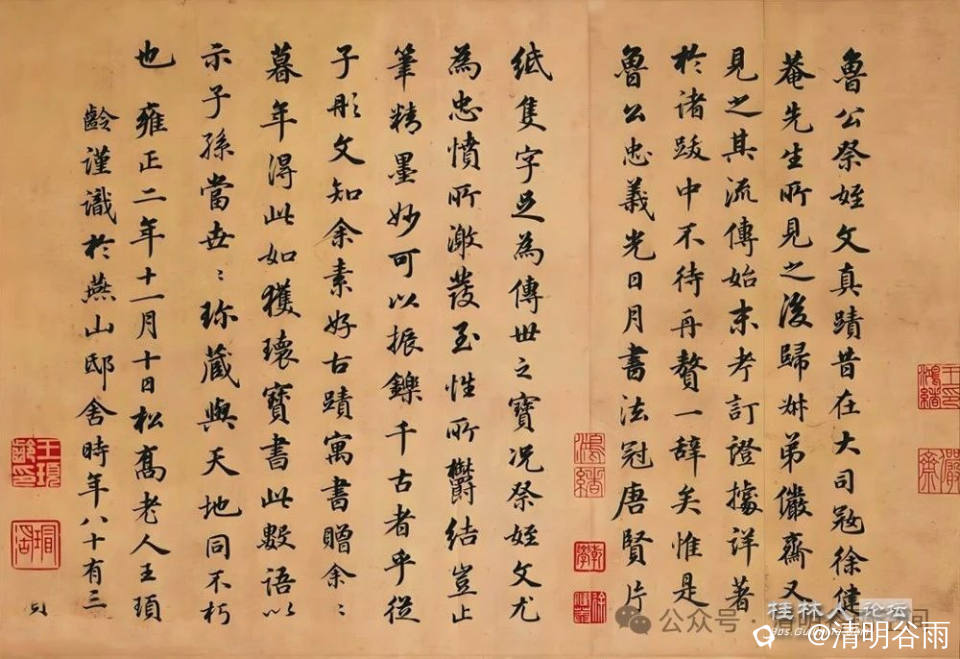 魯公祭姪文真蹟昔在大司冦徐健
菴先生所見之後歸叔弟儼齋又
見之其流傳始末考訂證據詳著
於諸跋中不待再贅一辭矣惟是
魯公忠義光日月書法冠唐賢片
紙隻字足為傳世之寶況祭姪文尤
為忠憤所激發至性所鬱結豈止
筆精墨妙可以振鑠千古者乎從
子彤文知余素好古蹟寓書贈余〻
暮年得此如獲瓌寶書此數語以
示子孫當世〻珎藏與天地同不朽
也 雍正二年十一月十日松喬老人王頊
齡謹識於燕山邸舍時年八十有三
鴻緒
儼齋
王頊齡印
桂林人论坛
公众号·清明
@清明谷雨